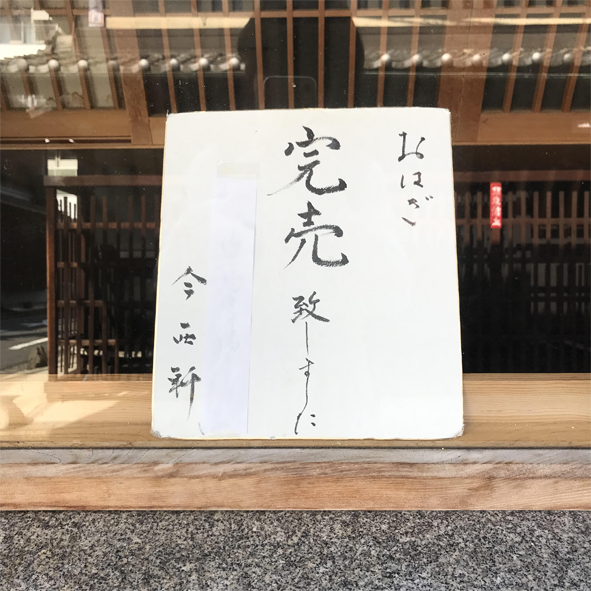 おはぎ
完売
致しました
今西軒